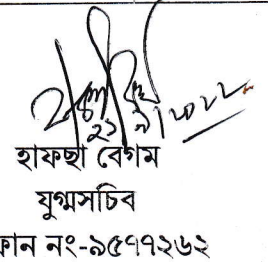 ২১/৯/২০২২
হাফছা বেগম
যুগ্মসচিব
ফোন নং-৯৫৭৭২৬২